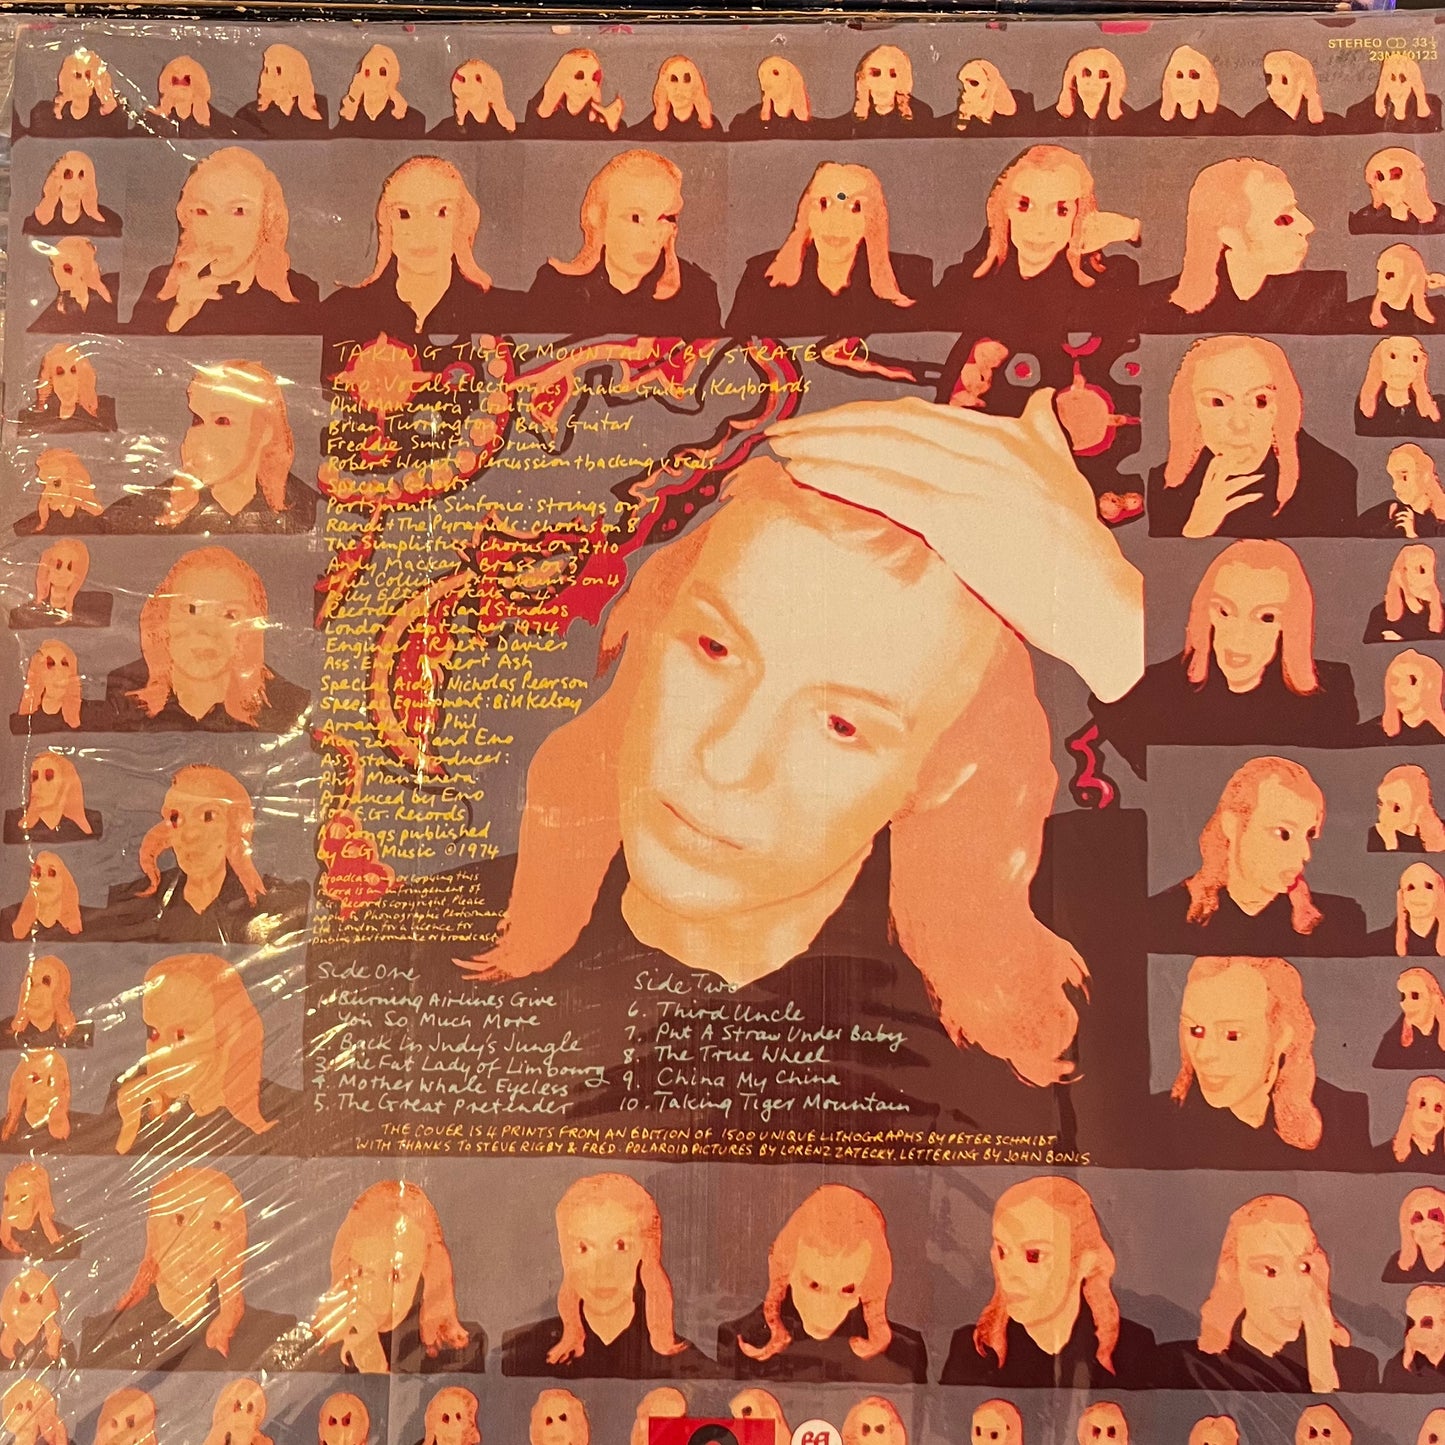 STEREO 33⅓
23MM0123
TAKING TIGER MOUNTAIN (BY STRATEGY)
Eno: Vocals, Electronics, Snake Guitar, Keyboards
Phil Manzanera: Guitars
Brian Turrington: Bass Guitar
Freddie Smith: Drums
Robert Wyatt: Percussion + backing vocals
Special Guests:
Portsmouth Sinfonia: strings on 7
Randi + The Pyramids: chorus on 8
The Simplistics: chorus on 2 + 10
Andy Mackay: Brass on 3
Phil Collins: extra drums on 4
Polly Eltes: Vocals on 4
Recorded at Island Studios
London September 1974
Engineer: Rhett Davies
Ass. Eng.: Robert Ash
Special Aide: Nicholas Pearson
Special Equipment: Bill Kelsey
Arranged by Phil
Manzanera and Eno
Assistant Producer:
Phil Manzanera
Produced by Eno
for E.G. Records
All songs published
by E.G. Music ©1974
Broadcasting or copying this
record is an infringement of
E.G. Records copyright. Please
apply to Phonographic Performance
Ltd. London for a licence for
public performance or broadcast
Side One
1. Burning Airlines Give
You So Much More
2. Back In Judy's Jungle
3. The Fat Lady of Limbourg
4. Mother Whale Eyeless
5. The Great Pretender
Side Two
6. Third Uncle
7. Put A Straw Under Baby
8. The True Wheel
9. China My China
10. Taking Tiger Mountain
THE COVER IS 4 PRINTS FROM AN EDITION OF 1500 UNIQUE LITHOGRAPHS BY PETER SCHMIDT
WITH THANKS TO STEVE RIGBY & FRED. POLAROID PICTURES BY LORENZ ZATECKY. LETTERING BY JOHN BONIS